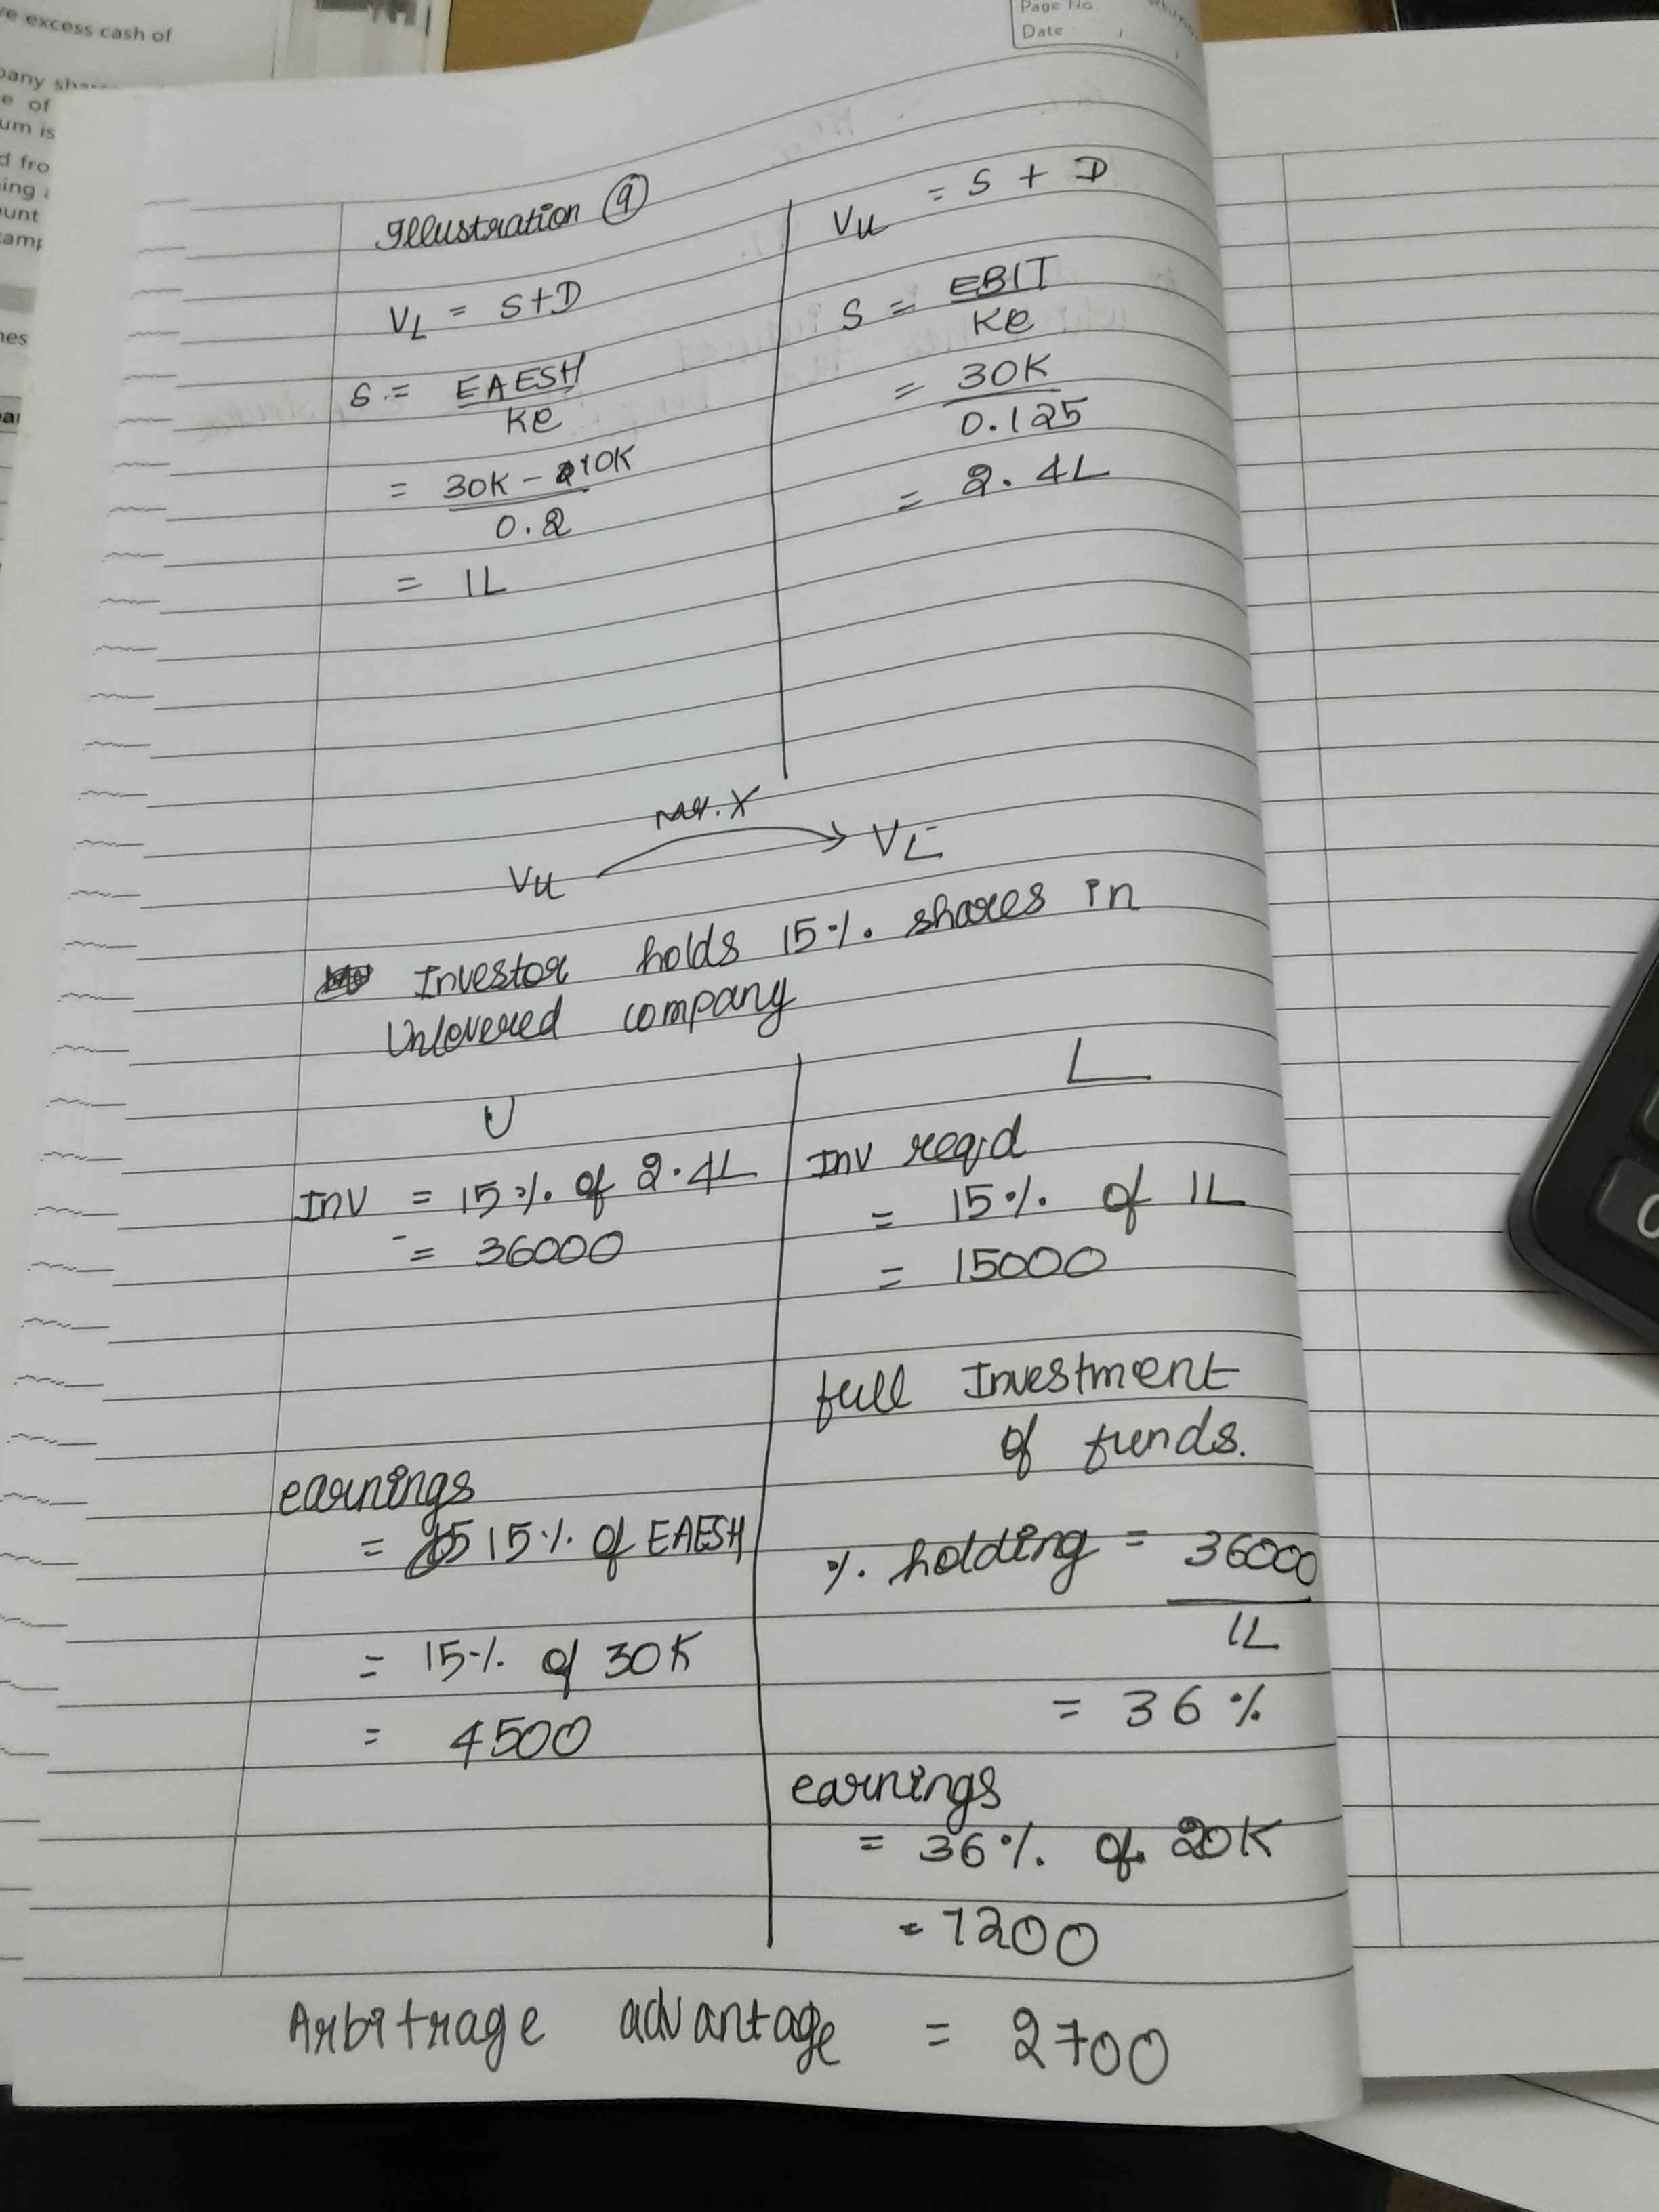 ve excess cash of
pany shar
e of
um is
d fro
ing
unt
nes
Page No
Date / /
Illustration 9
VL = S+D
S = EAESH
Ke
= 30K - 10K
0.2
= 1L
Vu = S + D
S = EBIT
Ke
= 30K
0.125
= 2.4L
Mr. X
Vu → VL
Investor holds 15% shares in
Unlevered company
U
Inv = 15% of 2.4L
= 36000
earnings
= 15% of EAESH
= 15% of 30K
= 4500
L
Inv reqd
= 15% of 1L
= 15000
full Investment
of funds.
% holding = 36000
1L
= 36%
earnings
= 36% of 20K
= 7200
Arbitrage advantage = 2700